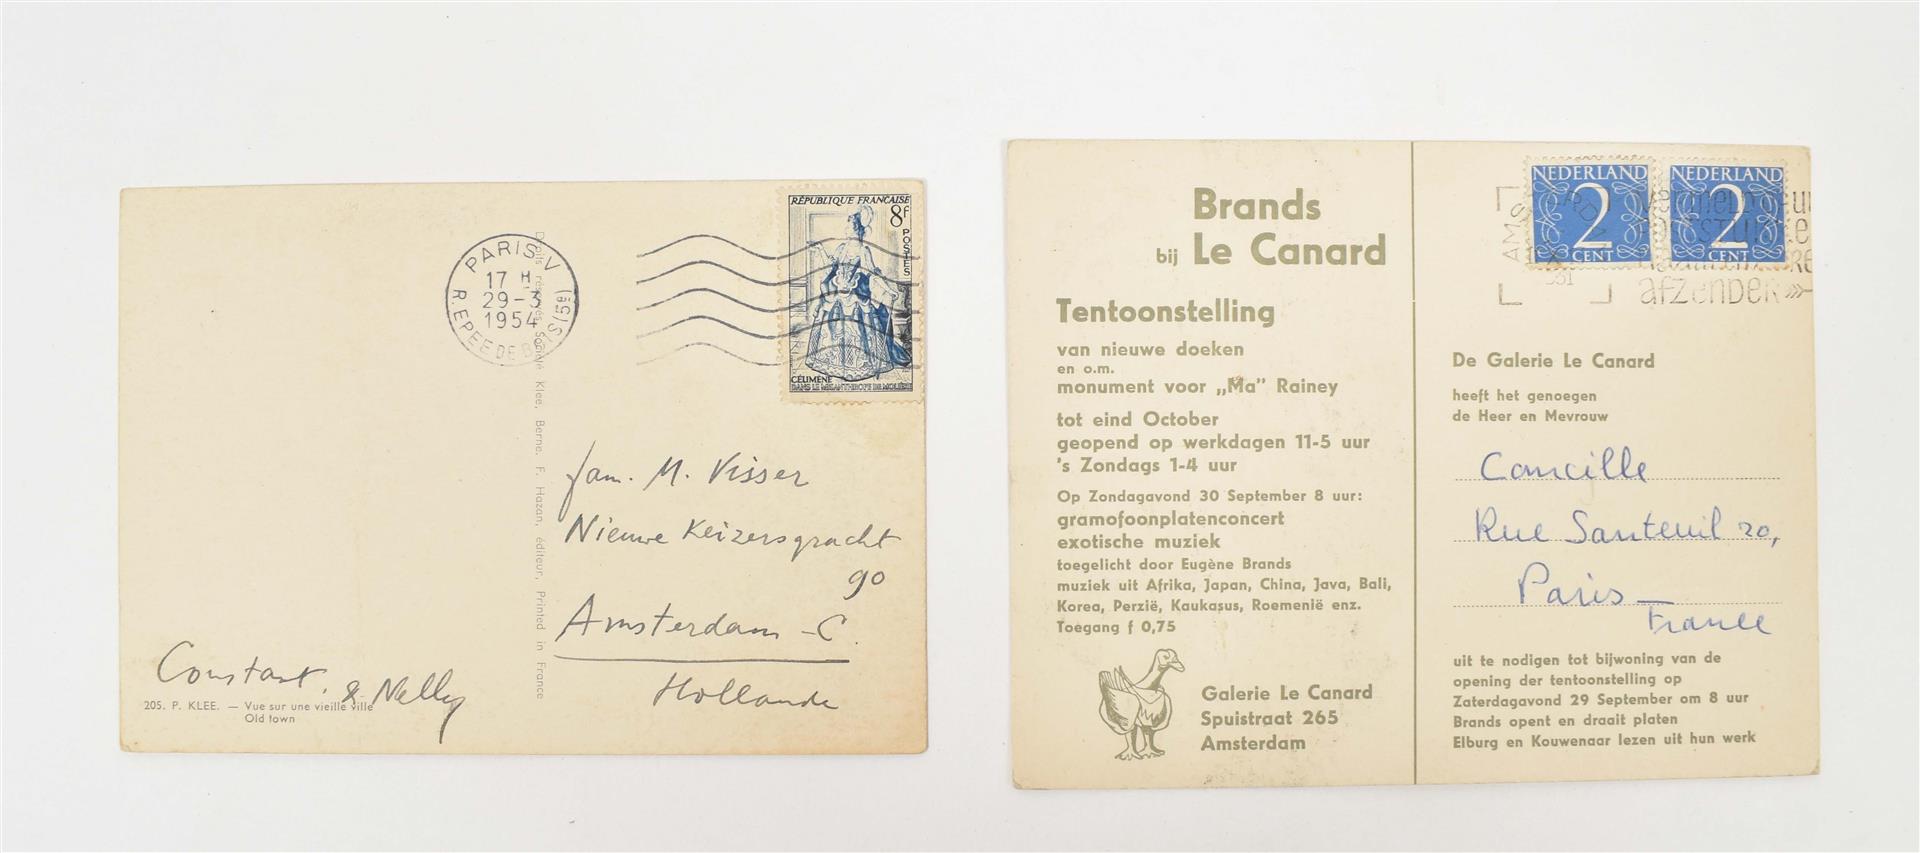 RÉPUBLIQUE FRANÇAISE
8f
POSTES
CÉLIMÈNE
DANS LE MISANTHROPE DE MOLIÈRE
PARIS V
17 H
29-3
1954
R. EPEE DE BOIS (5è)
Droits réservés, Société Klee, Berne. F. Hazan, éditeur, Printed in France
fam. M. Visser
Nieuwe Keizersgracht
90
Amsterdam-C.
Hollande
Constant. & Nelly
205. P. KLEE. — Vue sur une vieille ville
Old town
Brands
bij Le Canard
Tentoonstelling
van nieuwe doeken
en o.m.
monument voor „Ma” Rainey
tot eind October
geopend op werkdagen 11-5 uur
's Zondags 1-4 uur
Op Zondagavond 30 September 8 uur:
gramofoonplatenconcert
exotische muziek
toegelicht door Eugène Brands
muziek uit Afrika, Japan, China, Java, Bali,
Korea, Perzië, Kaukasus, Roemenië enz.
Toegang f 0,75
Galerie Le Canard
Spuistraat 265
Amsterdam
NEDERLAND
2
CENT
NEDERLAND
2
CENT
afzender
De Galerie Le Canard
heeft het genoegen
de Heer en Mevrouw
Corneille
Rue Santeuil 20,
Paris —
France
uit te nodigen tot bijwoning van de
opening der tentoonstelling op
Zaterdagavond 29 September om 8 uur
Brands opent en draait platen
Elburg en Kouwenaar lezen uit hun werk